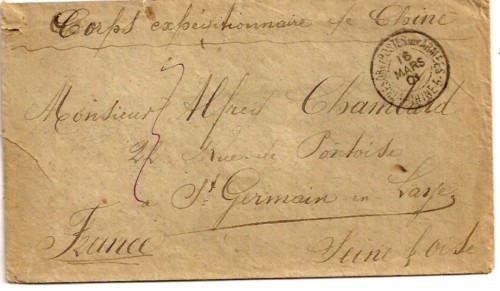 Corps expéditionnaire de Chine
TRESOR ET POSTES AUX ARMEES
16
MARS
01
CHINE
Monsieur Alfred Chambard
22 Rue de Pontoise
à St Germain en Laye
France Seine & Oise